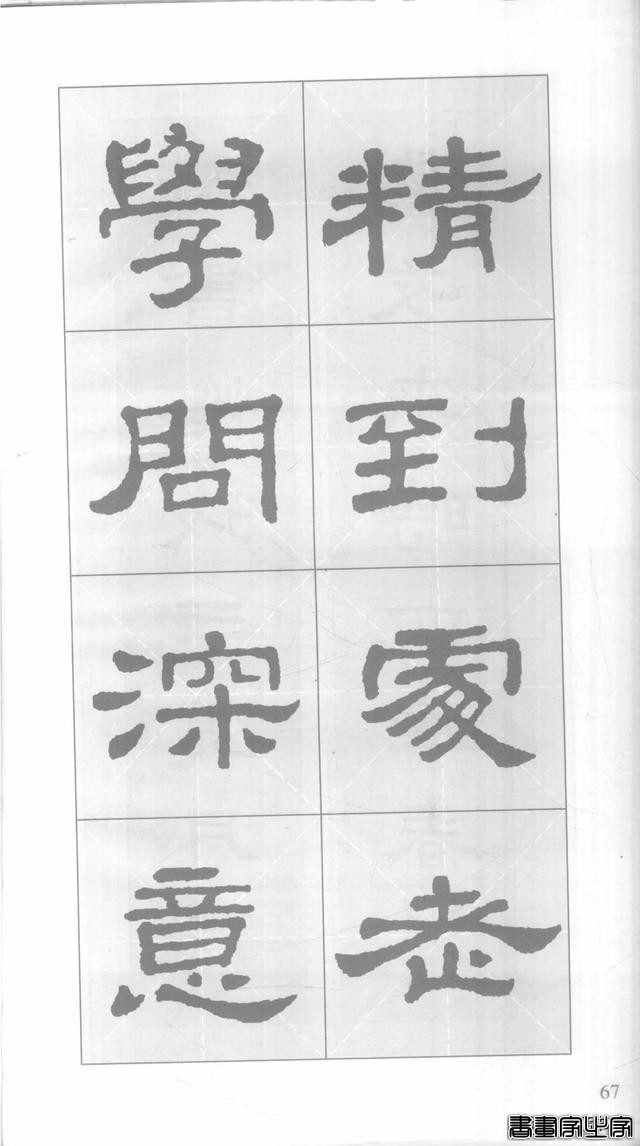 精到處老
學問深意
67
書畫家之家